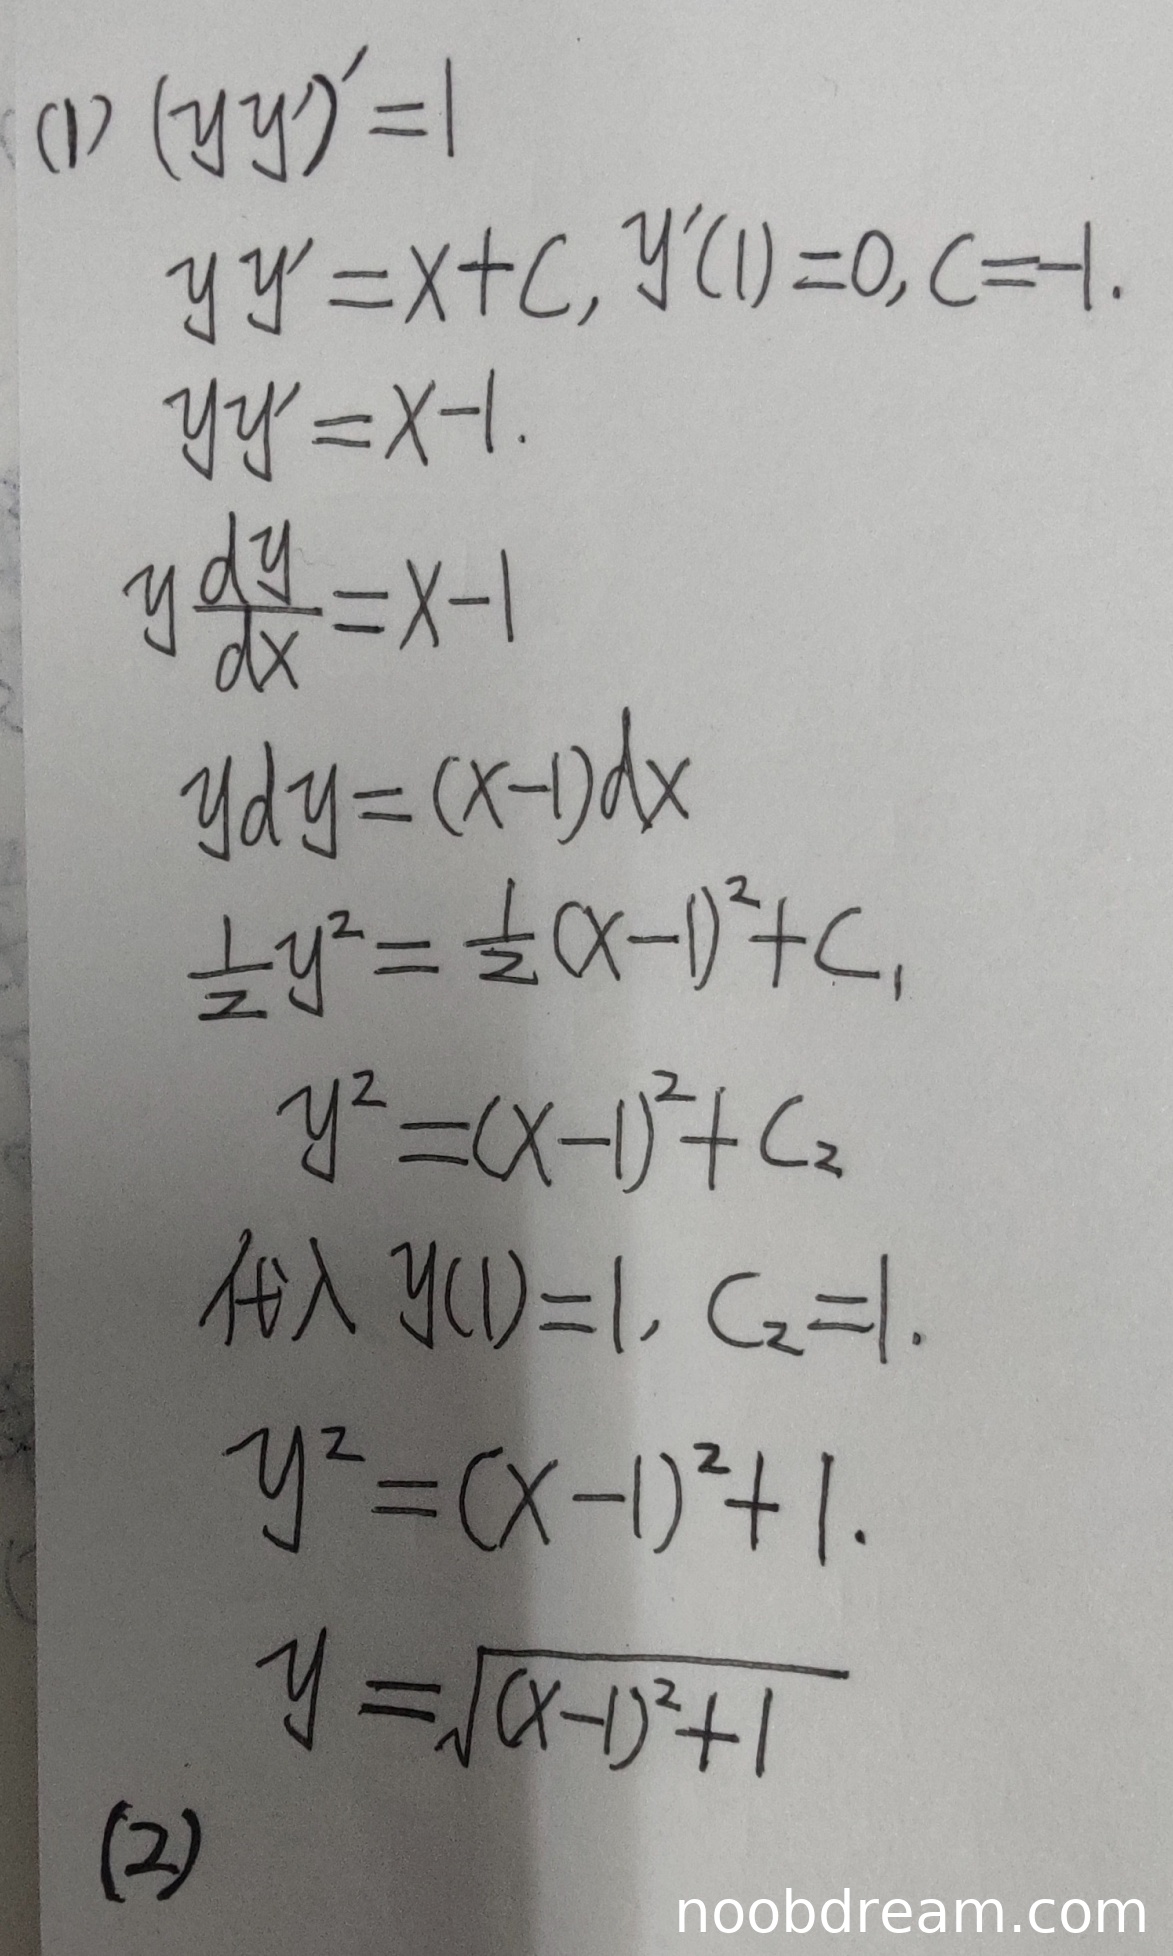 (1) (yy')'=1
yy'=x+C, y'(1)=0, C=-1.
yy'=x-1.
y dy/dx=x-1
ydy=(x-1)dx
1/2y²=1/2(x-1)²+C₁
y²=(x-1)²+C₂
代入 y(1)=1, C₂=1.
y²=(x-1)²+1.
y=√((x-1)²+1)
(2)
noobdream.com